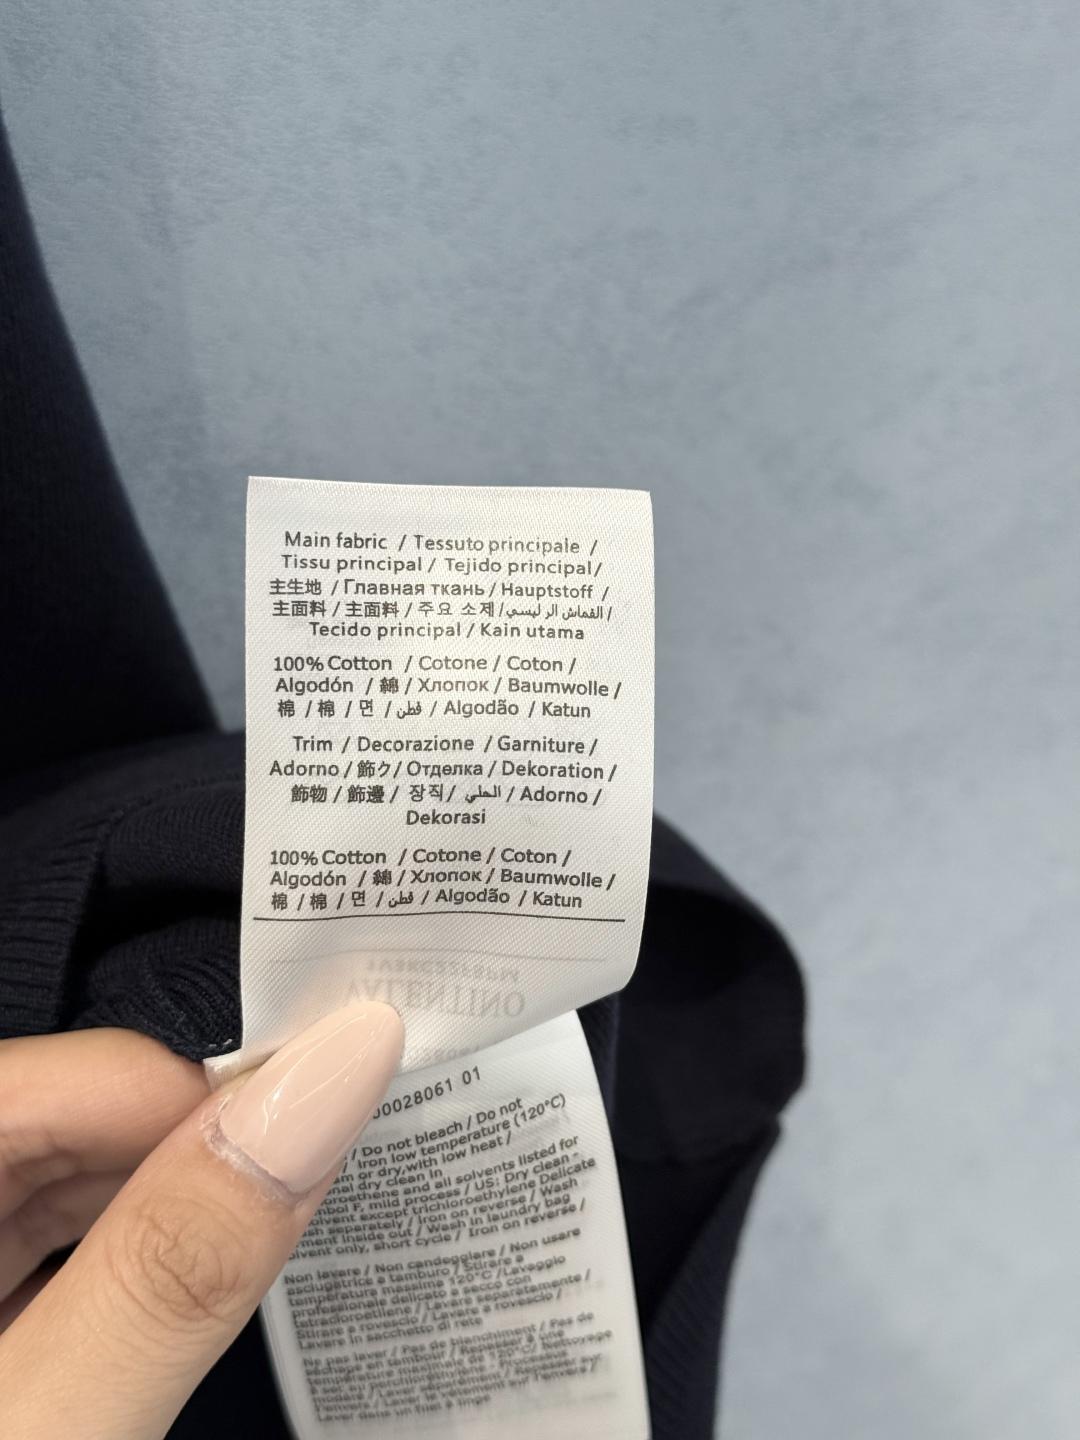 Main fabric / Tessuto principale /
Tissu principal / Tejido principal/
主生地 / Главная ткань / Hauptstoff /
主面料 / 主面料 / 주요 소제 / القماش الرئيسي /
Tecido principal / Kain utama
100% Cotton / Cotone / Coton /
Algodón / 綿 / Хлопок / Baumwolle /
棉 / 棉 / 면 / قطن / Algodão / Katun
Trim / Decorazione / Garniture /
Adorno / 飾ク/ Отделка / Dekoration /
飾物 / 飾邊 / 장직 / الحلي / Adorno /
Dekorasi
100% Cotton / Cotone / Coton /
Algodón / 綿 / Хлопок / Baumwolle /
棉 / 棉 / 면 / قطن / Algodão / Katun
VALENTINO
00028061 01
/ Do not bleach / Do not
/ Iron low temperature (120°C)
or dry,with low heat /
dry clean in
and all solvents listed for
F, mild process / US: Dry clean -
except trichloroethylene Delicate
separately / Iron on reverse / Wash
inside out / Wash in laundry bag
only, short cycle / Iron on reverse /
Non lavare / Non candeggiare / Non usare
asciugatrice a tamburo / Stirare a
temperatura massima 120°C /Lavaggio
professionale delicato a secco con
tetracloroetilene / Lavare separatamente /
Stirare a rovescio / Lavare a rovescio /
Lavare in sacchetto di rete
Ne pas laver / Pas de blanchiment / Pas de
séchage en tambour / Repasser à une
température maximale de 120°C/ Nettoyage
à sec au perchloréthylène - Processus
modéré / Laver séparément / Repasser sur
l'envers / Laver le vêtement sur l'envers /
Laver dans un filet à linge